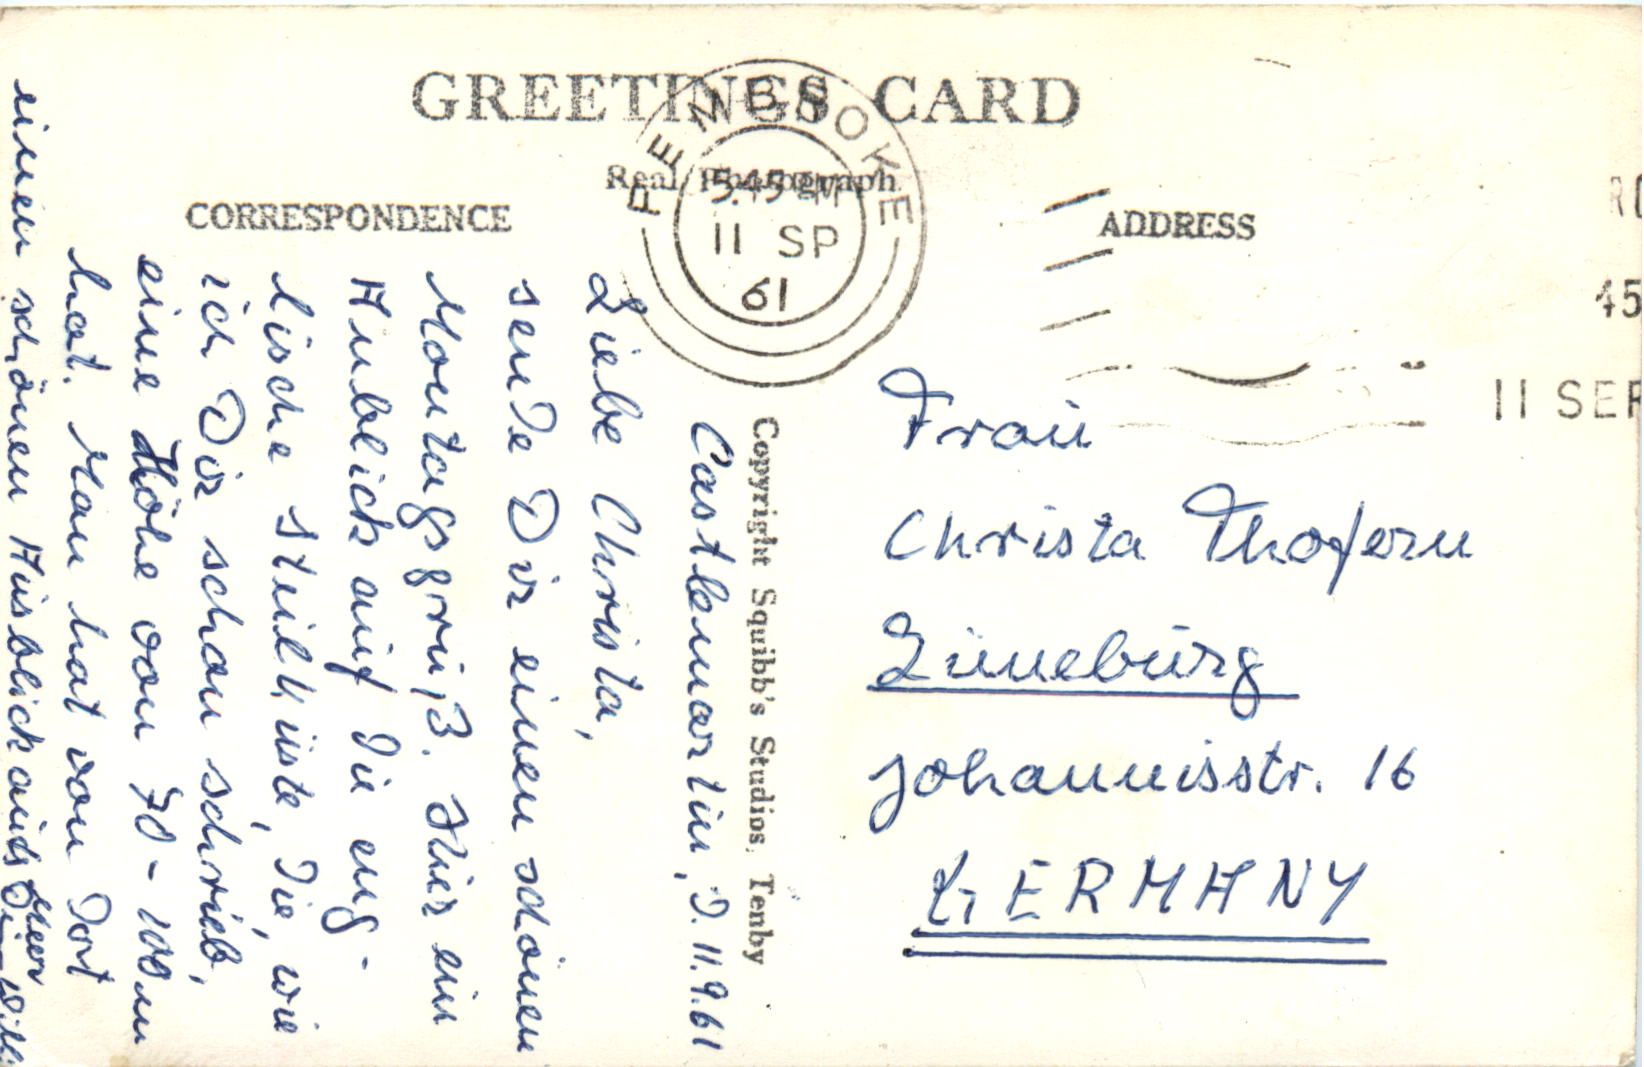 GREETINGS CARD
Real Photograph
CORRESPONDENCE
ADDRESS
PEMBROKE
5.45 PM
11 SP
61
45
11 SEP
Copyright Squibb's Studios, Tenby
Castlemartin, d. 11.9.61
Liebe Christa,
sende Dir einen schönen
Montagsgruß. Hier ein
Anblick auf die eng-
lische Steilküste, die, wie
ich Dir schon schrieb,
eine Höhe von 70-100m
hat. Man hat von dort
einen schönen Ausblick aufs
Meer
Dein Willi
Frau
Christa Thofern
Lüneburg
Johannisstr. 16
GERMANY